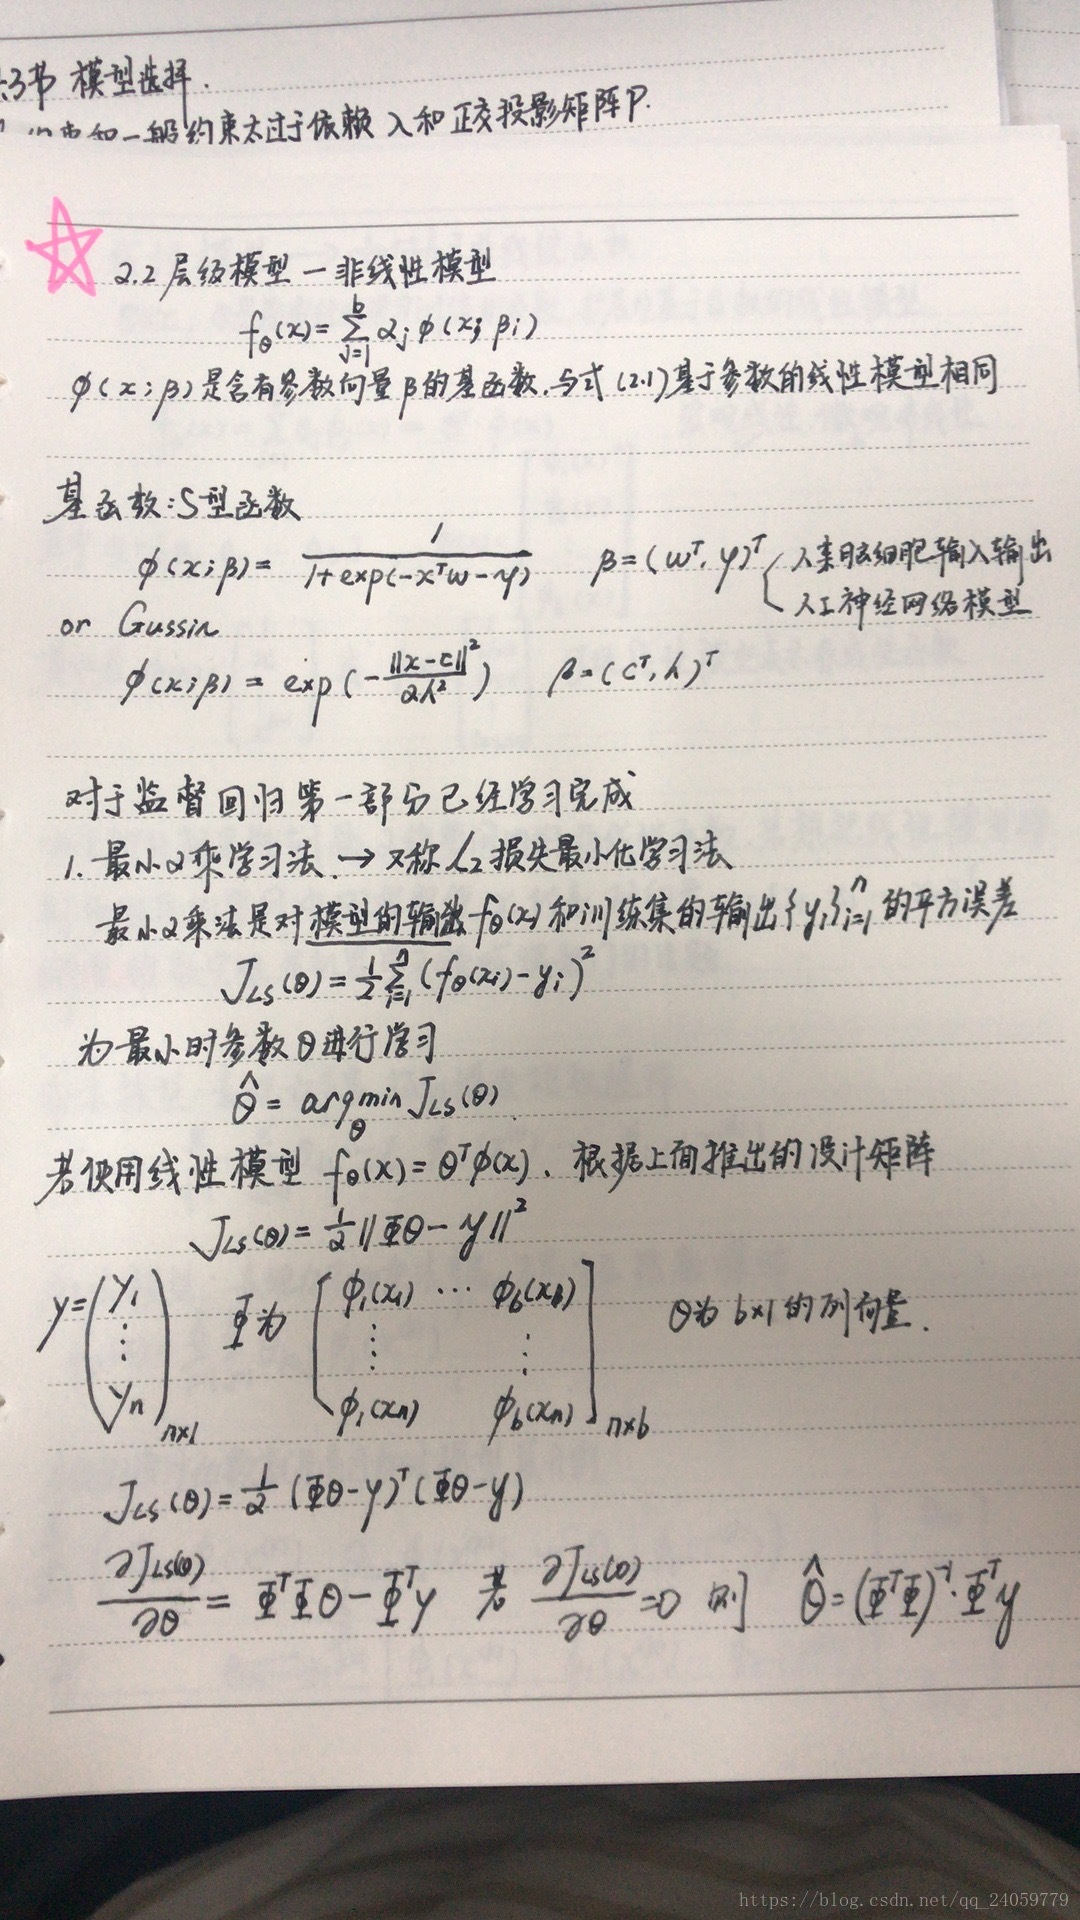 3节 模型选择.
一般约束太过于依赖 λ和正交投影矩阵P.
2.2 层级模型 — 非线性模型
fθ(x)=∑_{j=1}^{b} αjφ(x; βj)
φ(x;β)是含有参数向量β的基函数.与式(2.1)基于参数的线性模型相同
基函数:S型函数
φ(x;β)= 1/(1+exp(-xᵀw-γ)) β=(wᵀ,γ)ᵀ 人类脑细胞输入输出
人工神经网络模型
or Gussin
φ(x;β)= exp(-||x-c||²/2h²) β=(cᵀ,h)ᵀ
对于监督回归第一部分已经学习完成
1. 最小2乘学习法. → 又称 l₂损失最小化学习法
最小2乘法是对模型的输出fθ(x)和训练集的输出{yi}_{i=1}^{n}的平方误差
J_LS(θ)=½∑_{i=1}^{n}(fθ(xi)-yi)²
为最小时参数θ进行学习
θ̂= argmin_θ J_LS(θ).
若使用线性模型 fθ(x)=θᵀφ(x). 根据上面推出的设计矩阵
J_LS(θ)=½||Φθ-y||²
y=(y₁ ⋮ yn)n×1 Φ为 [φ₁(x₁) ⋯ φb(x₁) ⋮ ⋮ φ₁(xn) φb(xn)]n×b θ为b×1的列向量.
J_LS(θ)=½(Φθ-y)ᵀ(Φθ-y)
∂J_LS(θ)/∂θ = ΦᵀΦθ-Φᵀy 若 ∂J_LS(θ)/∂θ=0 则 θ̂=(ΦᵀΦ)⁻¹·Φᵀy
https://blog.csdn.net/qq_24059779